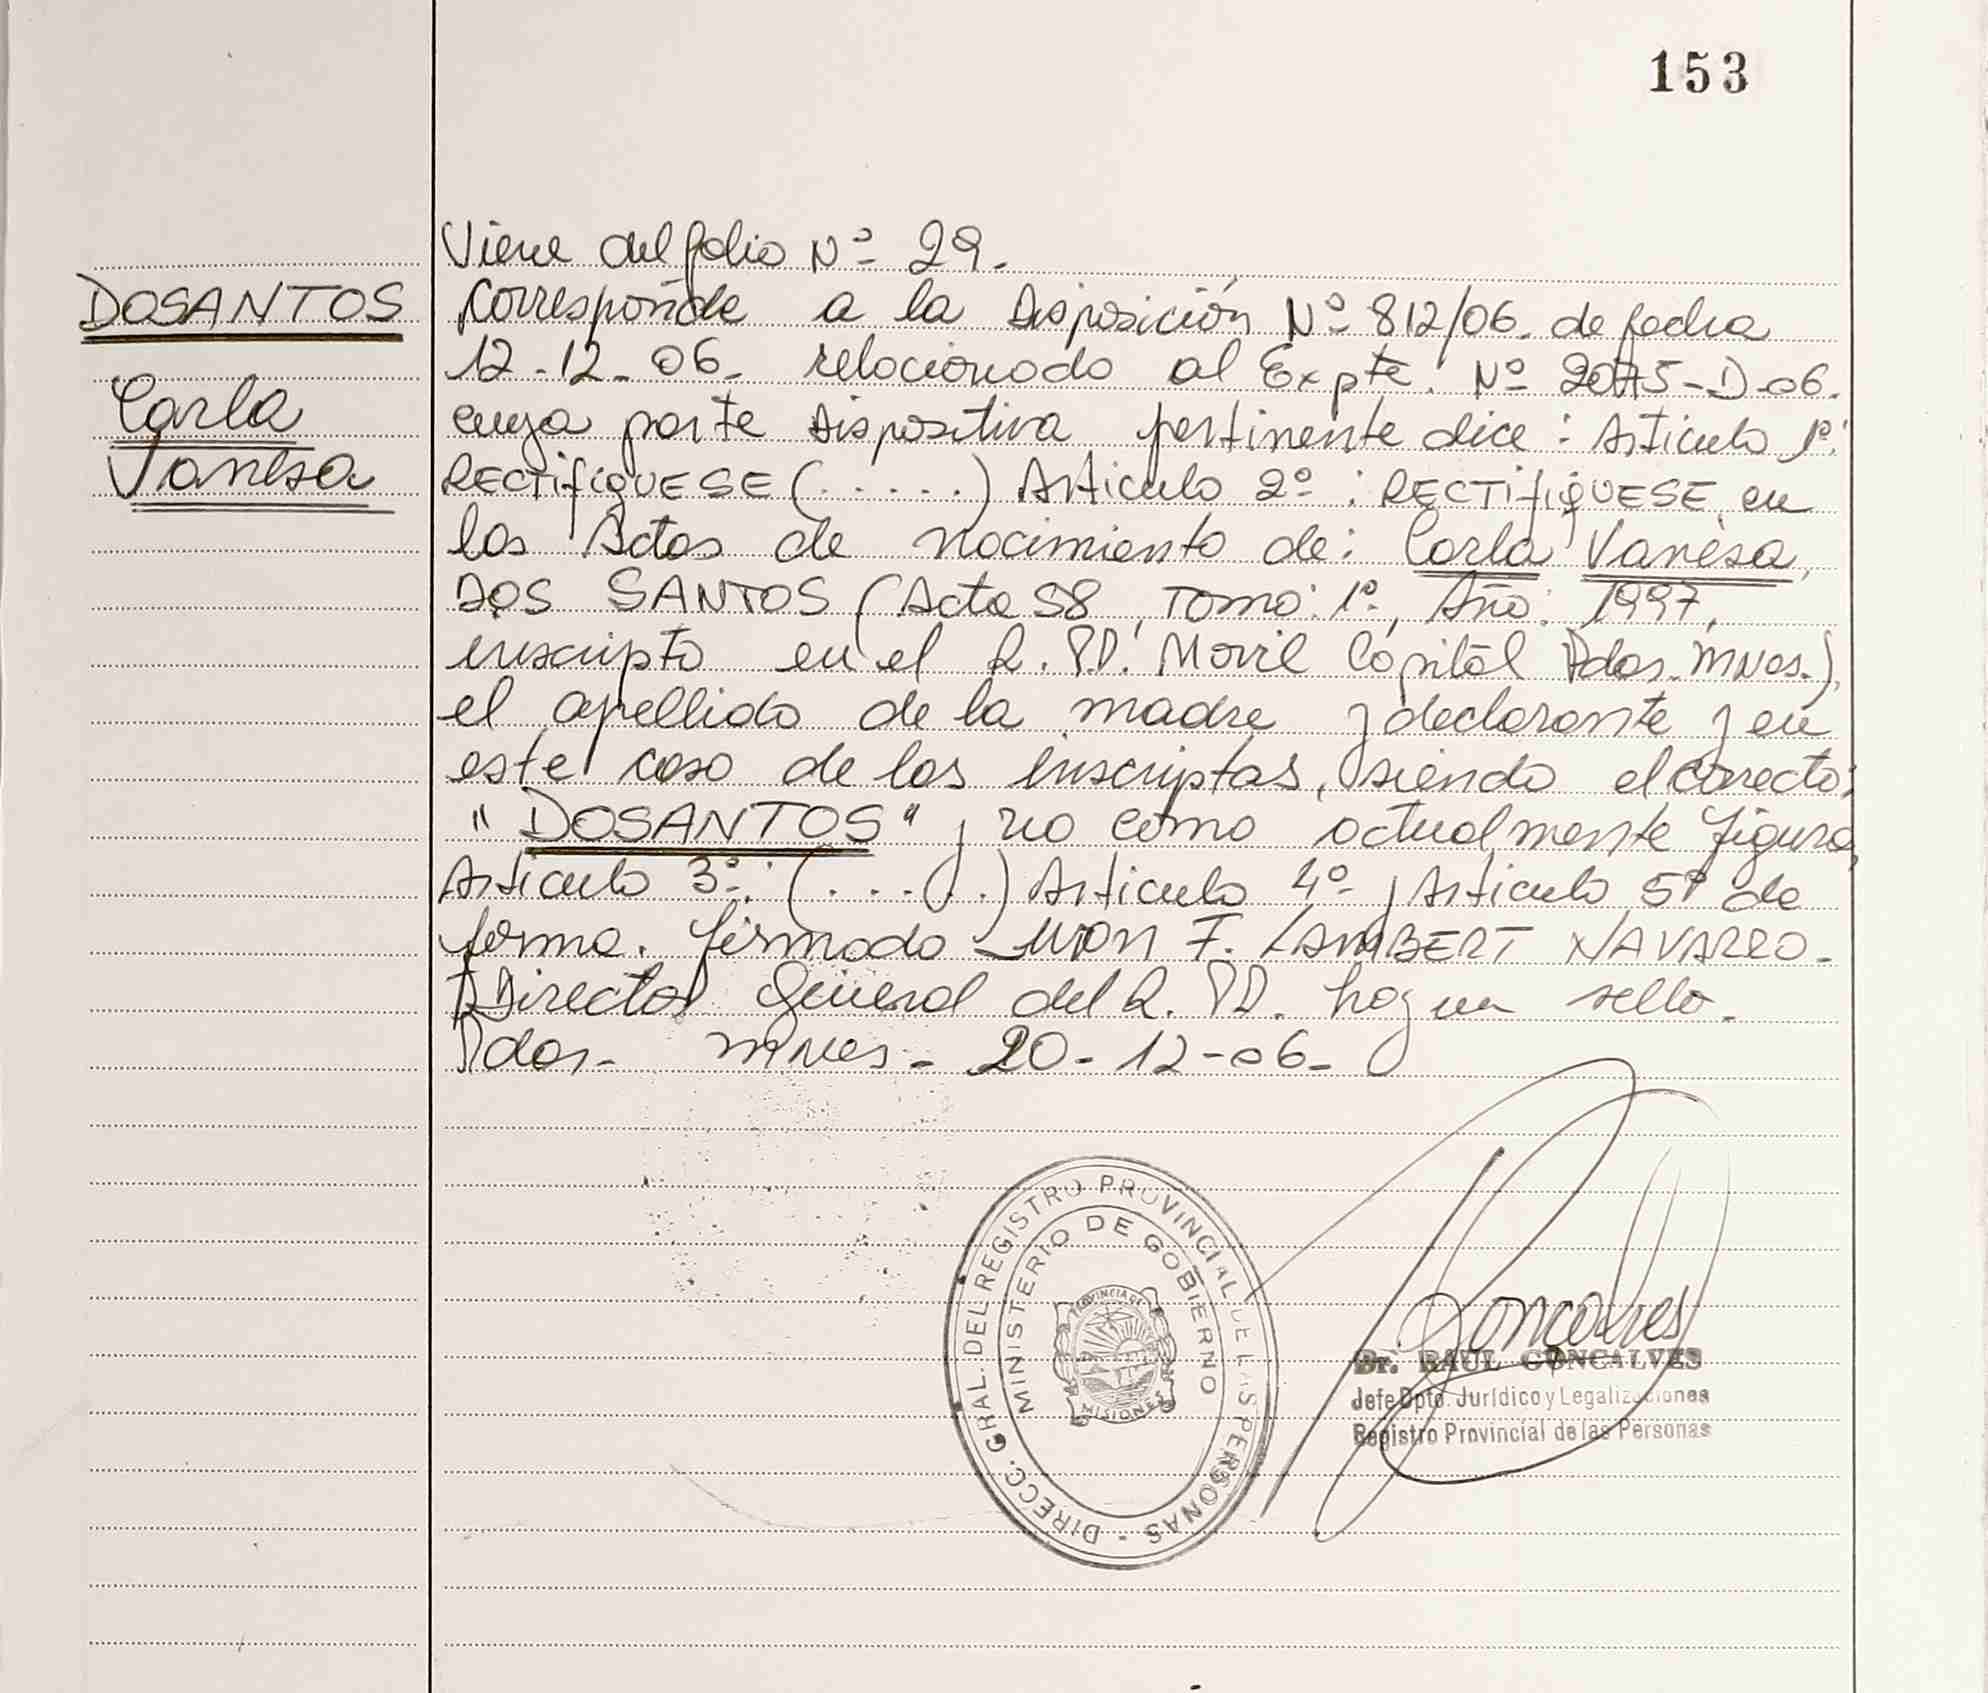 153
DOSANTOS
Carla
Vanesa
Viene del folio Nº 29.
Corresponde a la Disposición Nº 812/06. de fecha
12-12-06- relacionado al Expte. Nº 2075-D-06.
cuya parte dispositiva pertinente dice: Articulo 1º:
RECTIFIQUESE (.....) Articulo 2º: RECTIFIQUESE, en
las Actas de nacimiento de: Carla Vanesa
DOS SANTOS (Acta 58, Tomo: 1º, Año: 1997,
inscripto en el R.P.D. Movil Capital Pdas. Mnes.),
el apellido de la madre y declarante y en
este caso de las inscriptas, siendo el correcto:
"DOSANTOS" y no como actualmente figura,
Articulo 3º: (.....) Articulo 4º y Articulo 5º de
forma. firmado F. LAMBERT NAVARRO-
Director General del R.P.D. hay un sello.
Pdas- Mnes- 20-12-06-
DIRECC. GRAL. DEL REGISTRO PROVINCIAL DE LAS PERSONAS -
MINISTERIO DE GOBIERNO
PROVINCIA DE
MISIONES
Goncalves
Dr. RAUL GONCALVES
Jefe Dpto. Jurídico y Legalizaciones
Registro Provincial de las Personas